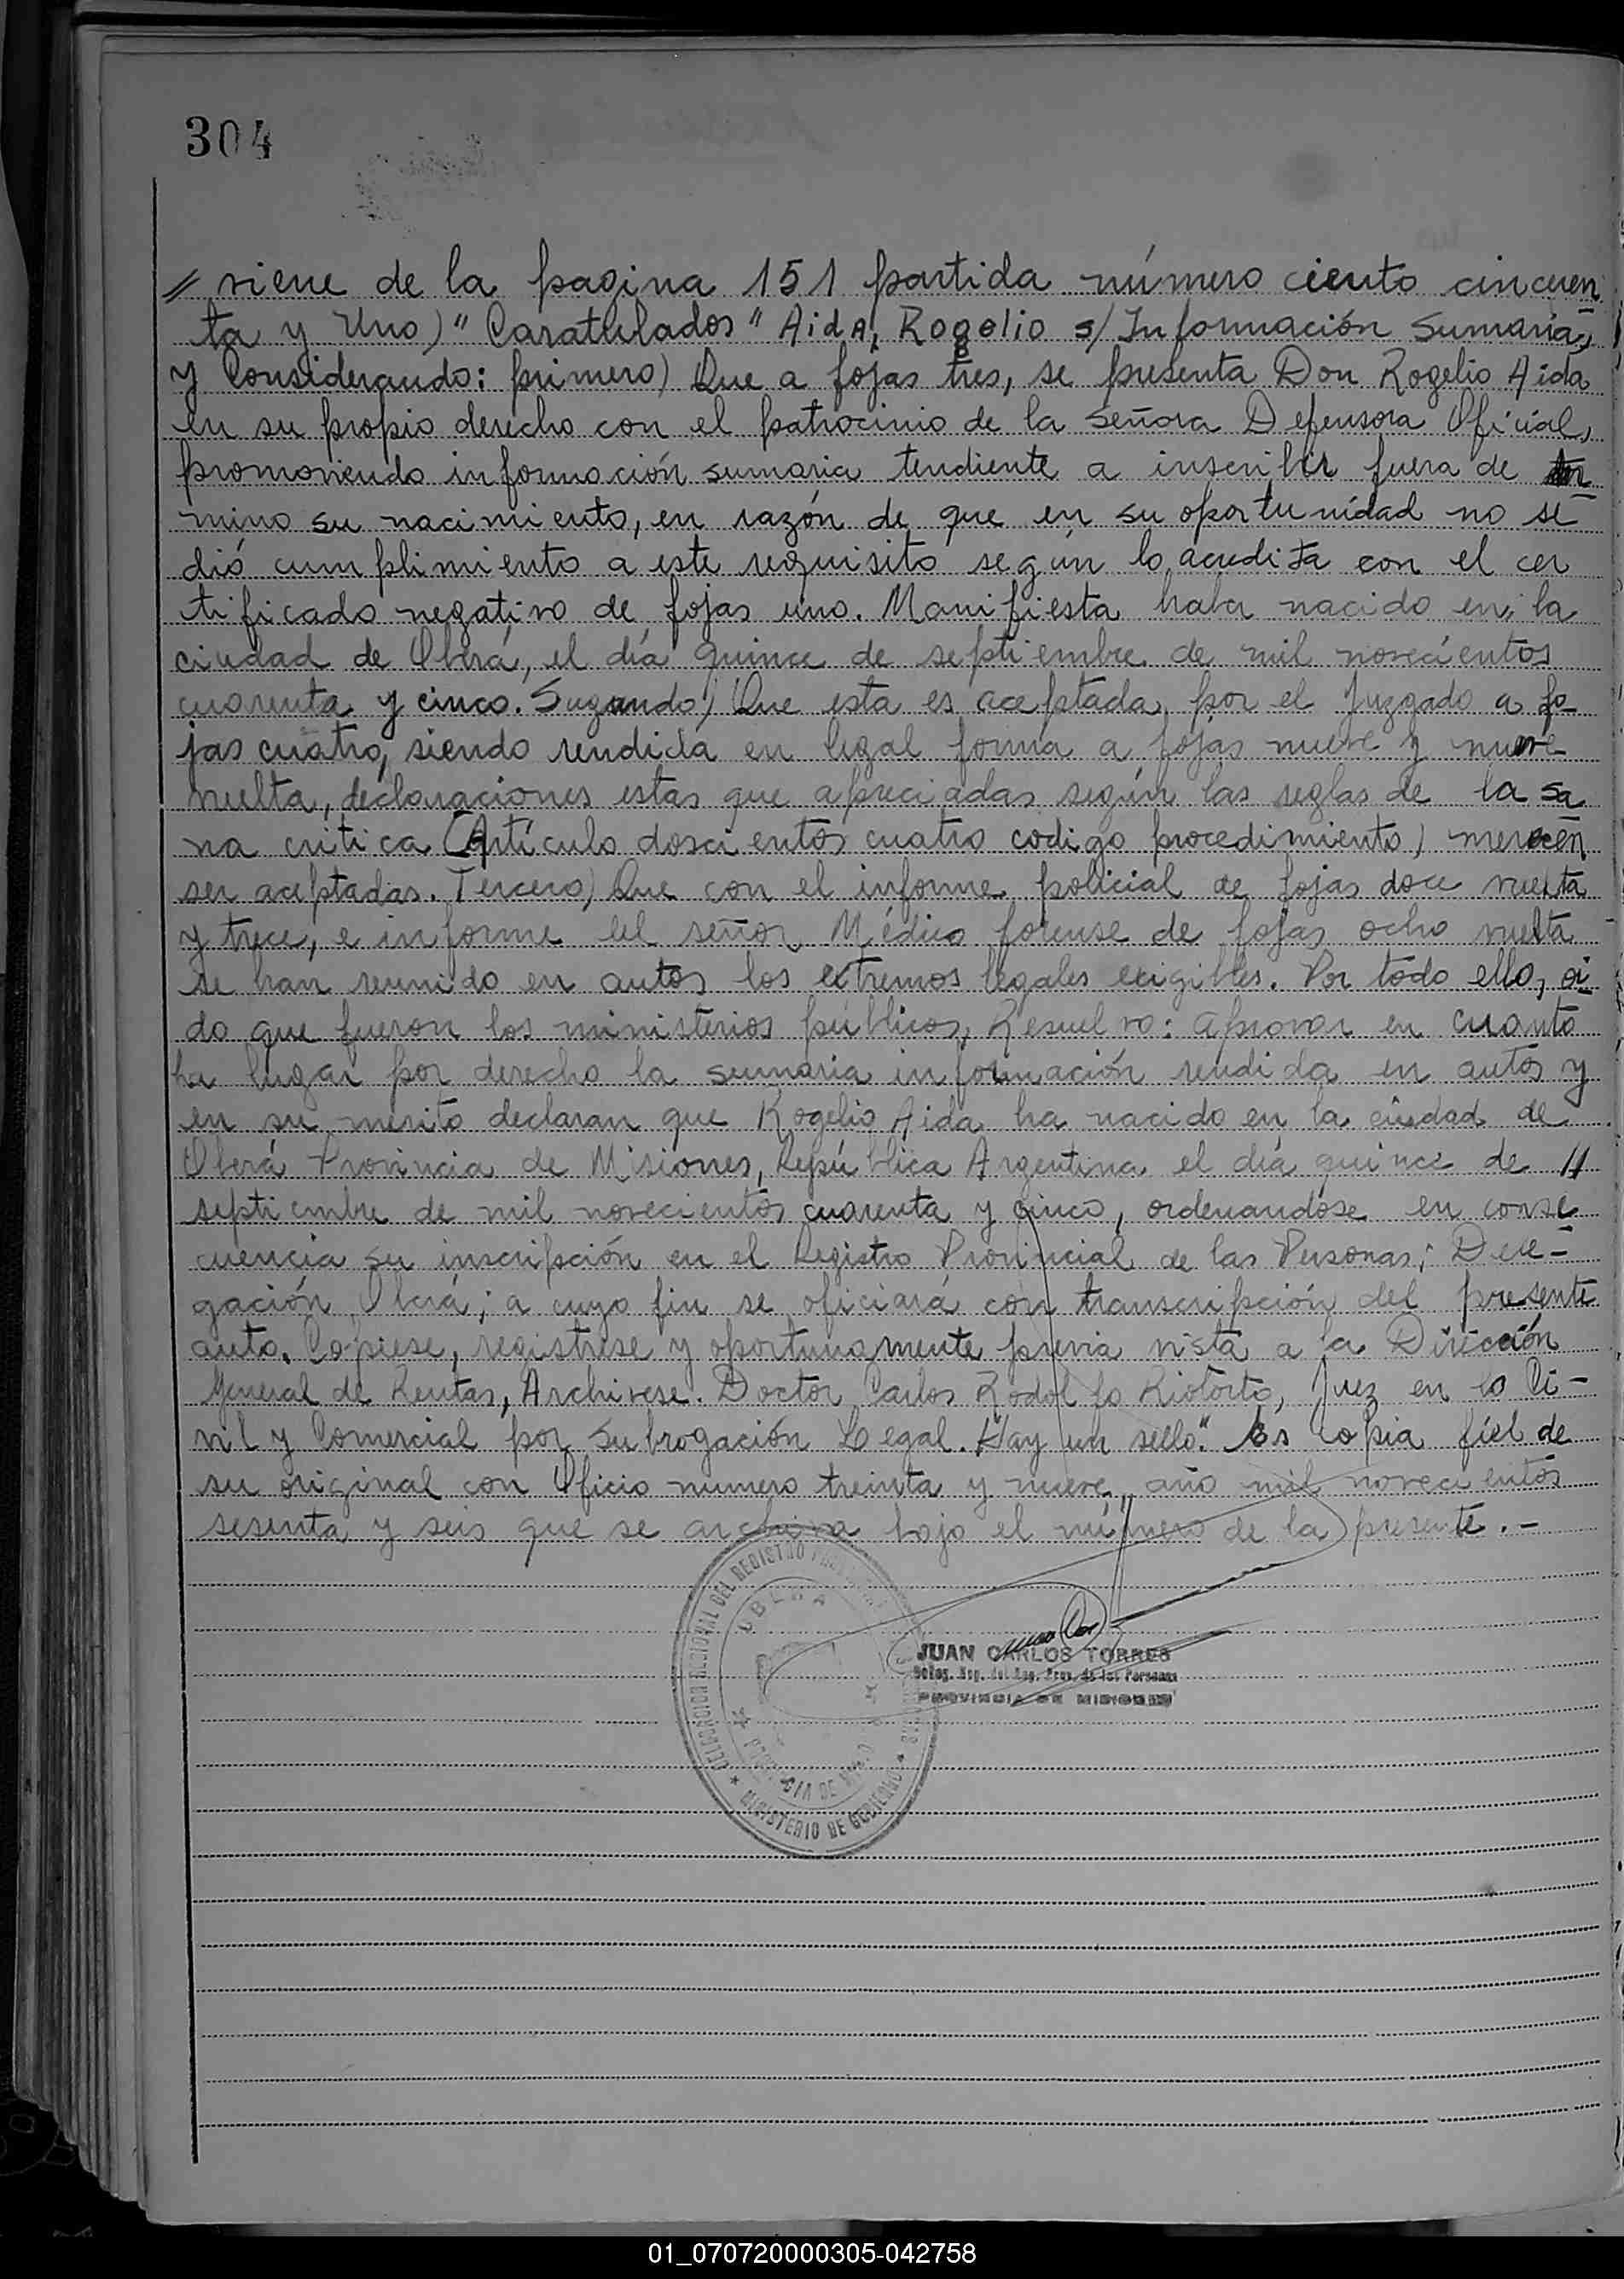 304
// viene de la pagina 151 partida número ciento cincuen
ta y Uno) " Caratulados " Aida, Rogelio s/ Información Sumaria,
y Considerando: primero) Que a fojas tres, se presenta Don Rogelio Aida
en su propio derecho con el patrocinio de la señora Defensora Oficial,
promoviendo información sumaria tendiente a inscribir fuera de ter
mino su nacimiento, en razón de que en su oportunidad no se
dió cumplimiento a este requisito según lo acredita con el cer
tificado negativo de fojas uno. Manifiesta haber nacido en la
ciudad de Oberá, el día quince de septiembre de mil novecientos
cuarenta y cinco. Segundo) Que esta es aceptada por el Juzgado a fo-
jas cuatro, siendo rendida en legal forma a fojas nueve y nueve
vuelta, declaraciones estas que apreciadas según las reglas de la sa
na critica (Artículo doscientos cuatro codigo procedimiento) merecen
ser aceptadas. Tercero) Que con el informe policial de fojas doce vuelta
y trece, e informe del señor Médico forense de fojas ocho vuelta
se han reunido en autos los extremos legales exigibles. Por todo ello, oi
do que fueron los ministerios públicos, Resuelvo: aprovar en cuanto
ha lugar por derecho la sumaria información rendida en autos y
en su merito declaran que Rogelio Aida ha nacido en la ciudad de
Oberá Provincia de Misiones, República Argentina el día quince de //
septiembre de mil novecientos cuarenta y cinco, ordenandose en conse
cuencia su inscripción en el Registro Provincial de las Personas; Dele-
gación Oberá; a cuyo fin se oficiará con transcripción del presente
auto. Copiese, registrese y oportunamente previa vista a la Dirección
General de Rentas, Archivese. Doctor Carlos Rodolfo Riotorto, Juez en lo Ci-
vil y Comercial por Subrogación Legal. Hay un sello." Es Copia fiel de
su original con Oficio numero treinta y nueve, año mil novecientos
sesenta y seis que se archiva bajo el número de la presente.-
DELEGACION REGIONAL DEL REGISTRO
OBERA
MINISTERIO DE GOBIERNO
JUAN CARLOS TORRES
Deleg. Reg. del Reg. Prov. de las Personas
PROVINCIA DE MISIONES
01_070720000305-042758